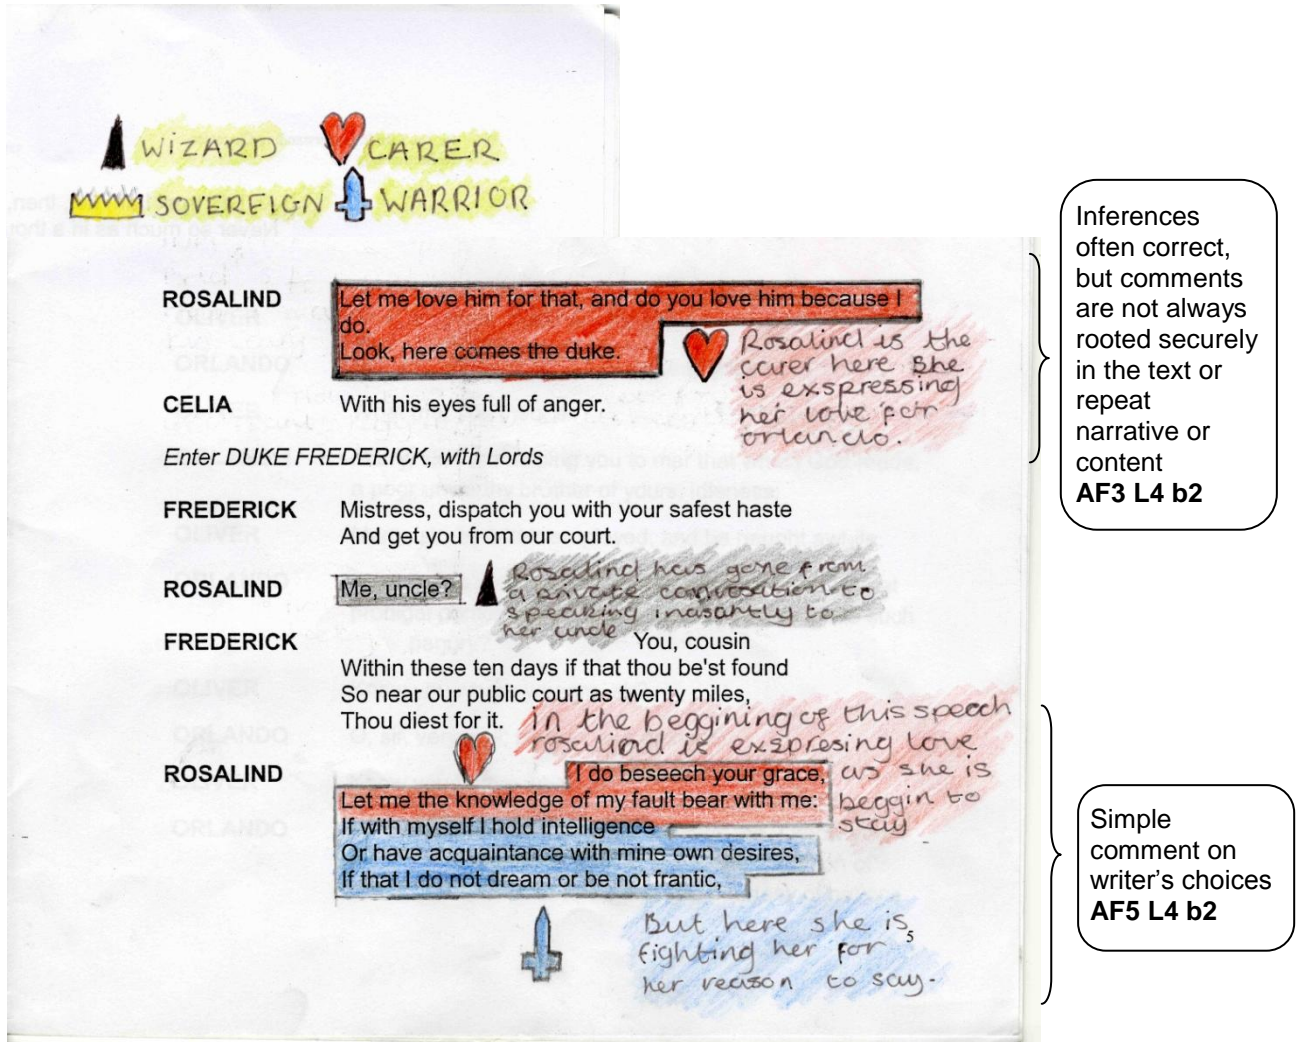 WIZARD CARER
SOVEREIGN WARRIOR
Never so much as in a thou
ROSALIND Let me love him for that, and do you love him because I
do.
Look, here comes the duke.
Rosalind is the
carer here she
is exspressing
her love for
orlando.
CELIA With his eyes full of anger.
Enter DUKE FREDERICK, with Lords
FREDERICK Mistress, dispatch you with your safest haste
And get you from our court.
ROSALIND Me, uncle?
Rosalind has gone from
a private convosation to
speaking inasantly to
her uncle
FREDERICK You, cousin
Within these ten days if that thou be'st found
So near our public court as twenty miles,
Thou diest for it.
in the beggining of this speech
rosalind is exspresing love
as she is
beggin to
stay
ROSALIND I do beseech your grace,
Let me the knowledge of my fault bear with me:
If with myself I hold intelligence
Or have acquaintance with mine own desires,
If that I do not dream or be not frantic,
But here she is
fighting her for
her reason to say.
5
Inferences
often correct,
but comments
are not always
rooted securely
in the text or
repeat
narrative or
content
AF3 L4 b2
Simple
comment on
writer's choices
AF5 L4 b2